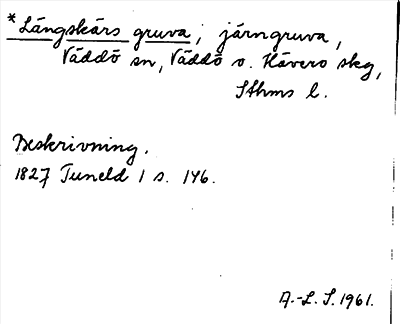 *Långskärs gruva, järngruva,
Väddö sn, Väddö o. Hävero skg,
Sthms l.
Beskrivning.
1827 Tuneld 1 s. 146.
A.-L. S. 1961.